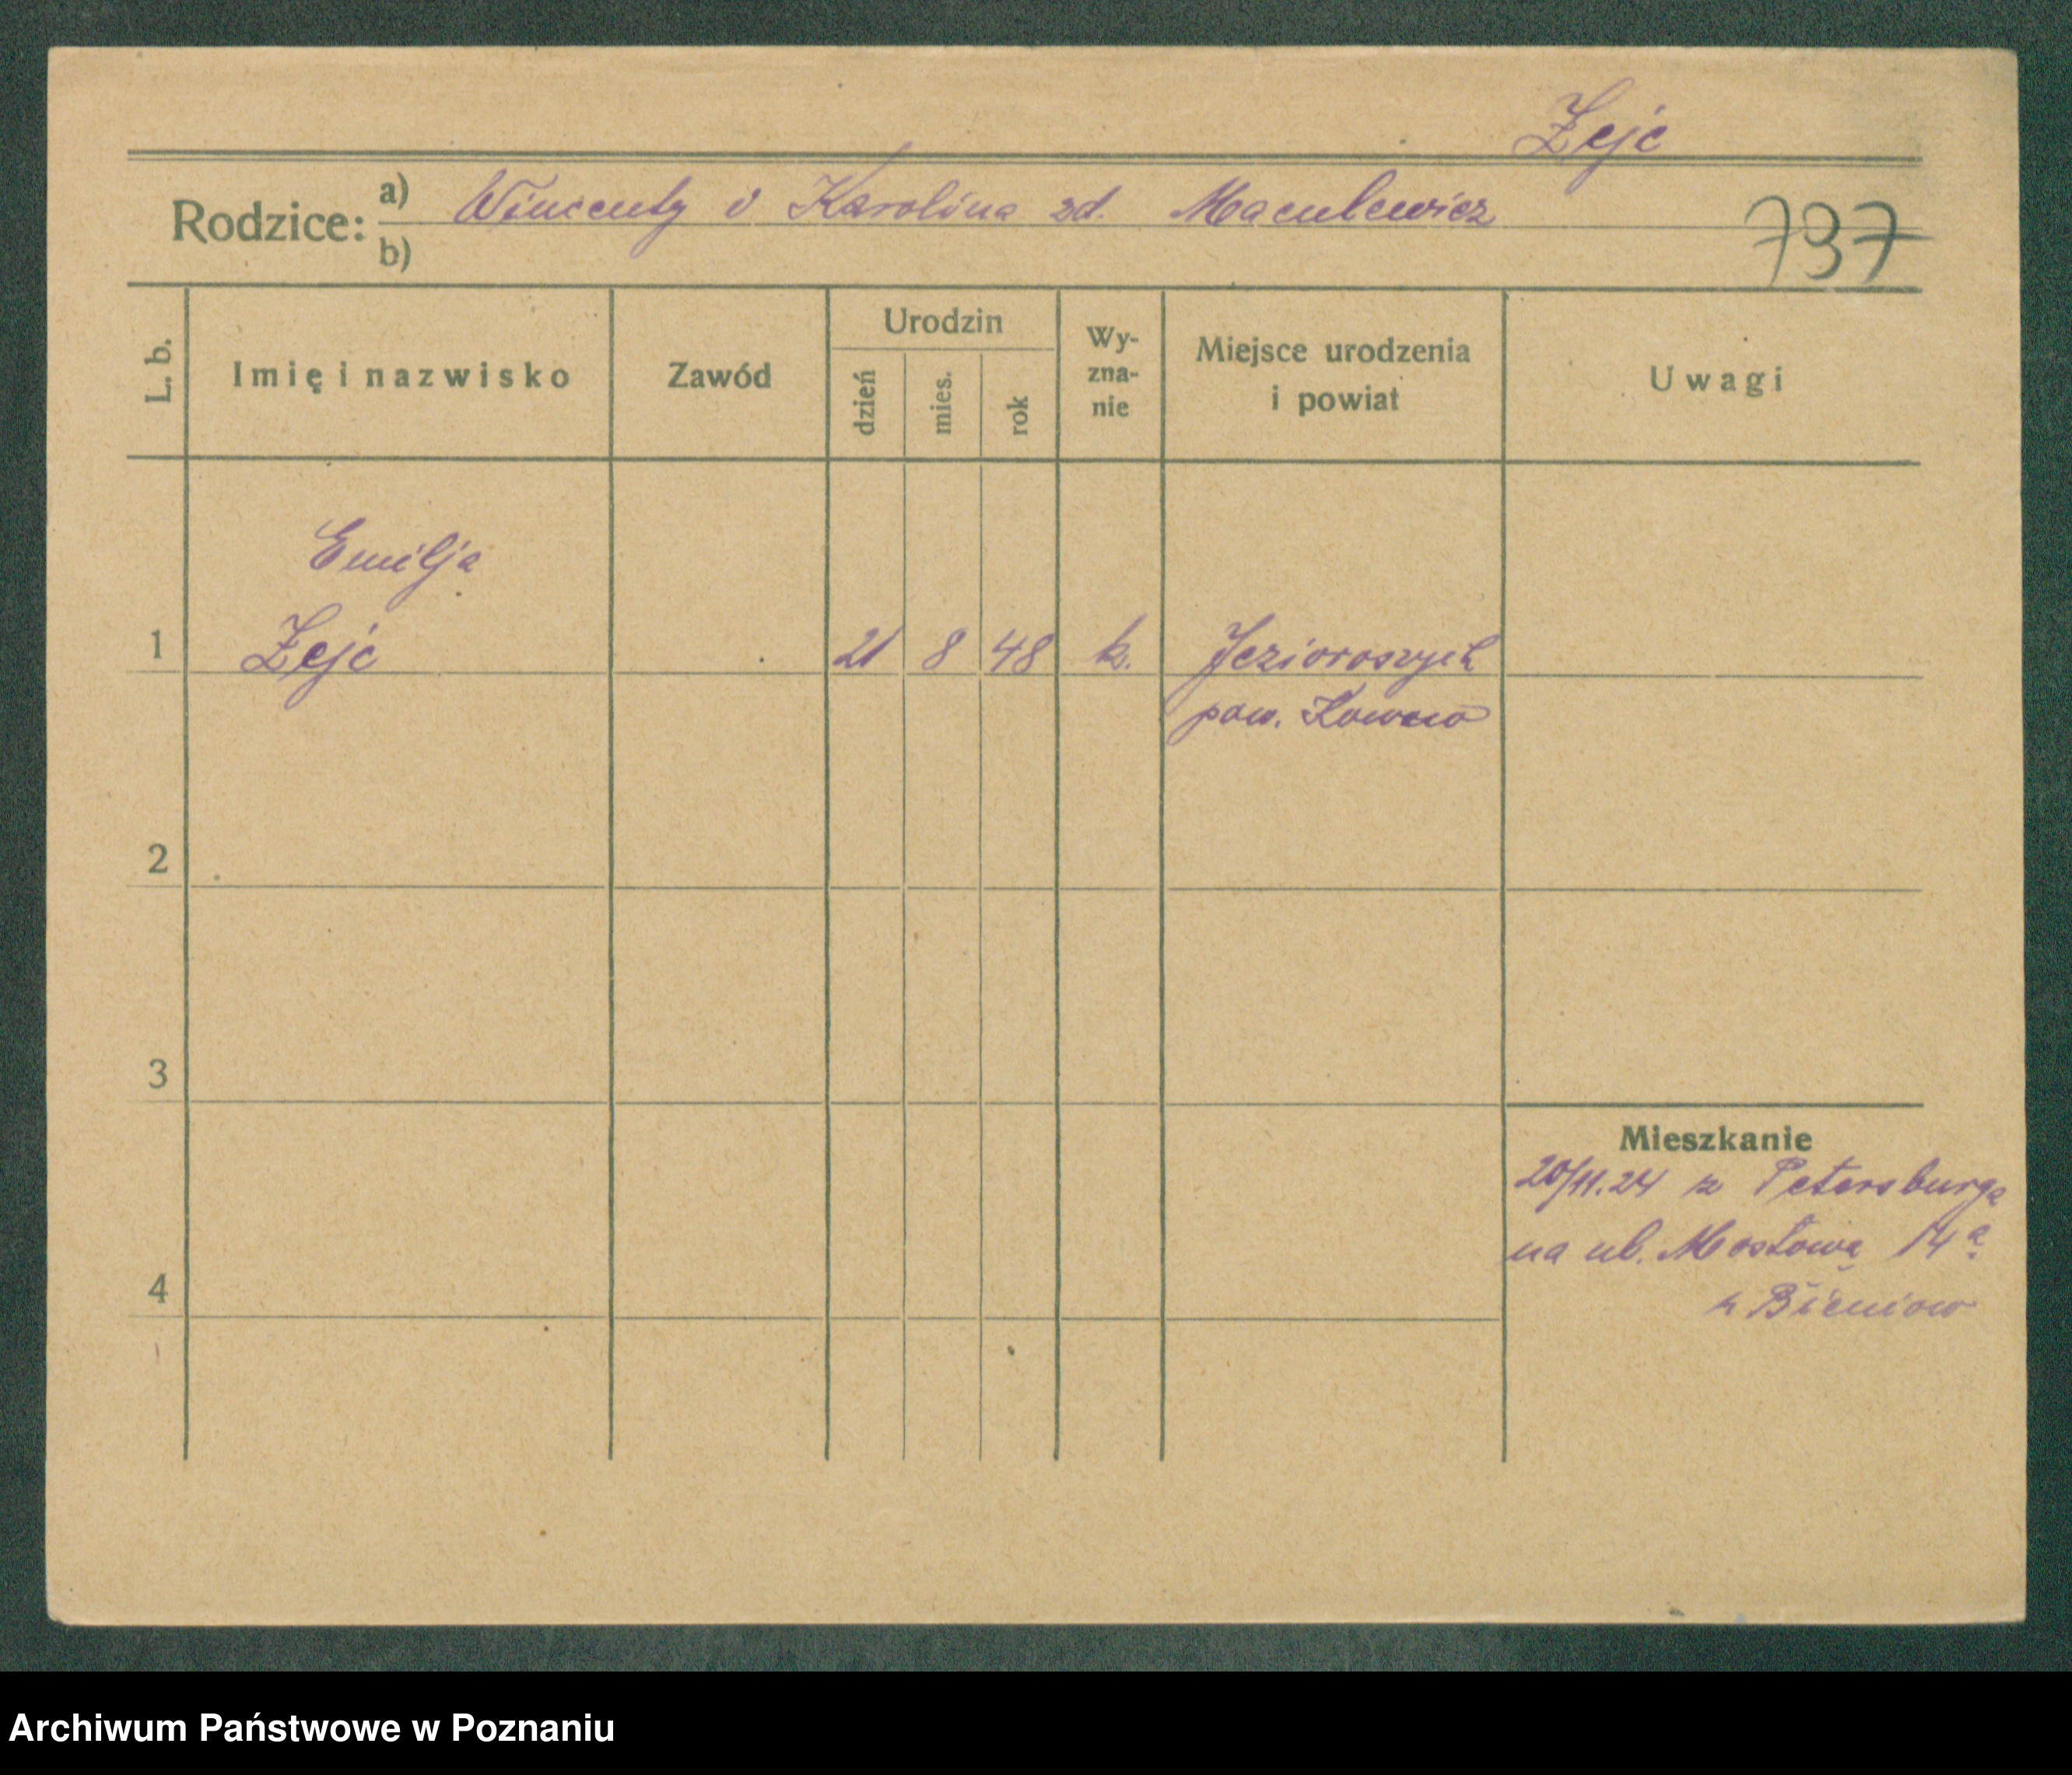 Zejc
Rodzice: a) Wincenty i Karolina zd. Maculewicz
b)
797
L. b. Imię i nazwisko Zawód Urodzin dzień mies. rok Wy-zna-nie Miejsce urodzenia i powiat Uwagi
Emilja
1 Zejc 21 8 48 k. Jezioroszych
pow. Kowno
2
3
Mieszkanie
20/11.24 z Petersburga
na ul. Mostowa 14a
4
Archiwum Państwowe w Poznaniu